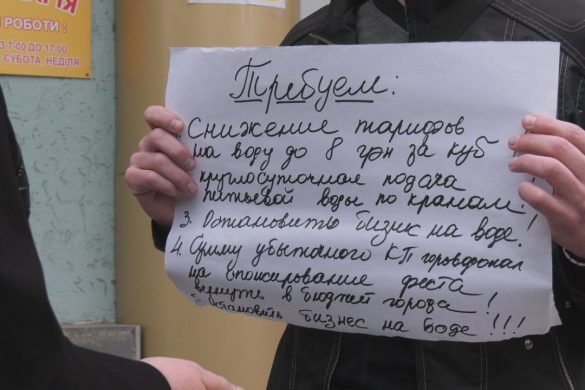 РОБОТИ :
З 7-00 ДО 17-00
СУБОТА, НЕДІЛЯ
Требуем:
Снижение тарифов
на воду до 8 грн за куб
круглосуточная подача
питьевой воды по кранам!
3. Остановить бизнес на воде!
4. Сумму убыточного КП горводоканал
на спонсирование феста
вернуть в бюджет города!
5. Остановить бизнес на воде!!!